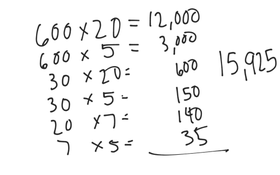 600 × 20 = 12,000
600 × 5 = 3,000
30 × 20 = 600
30 × 5 = 150
20 × 7 = 140
7 × 5 = 35
15,925